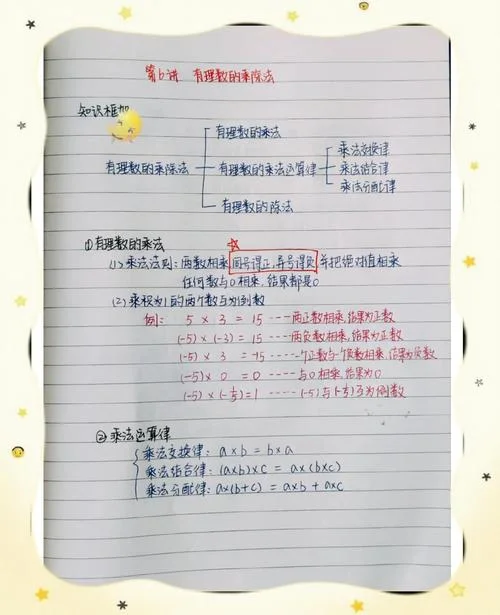 第6讲 有理数的乘除法
知识框架
有理数的乘除法
有理数的乘法
有理数的乘法运算律
乘法交换律
乘法结合律
乘法分配律
有理数的除法
①有理数的乘法
(1)乘法法则:两数相乘同号得正,异号得负并把绝对值相乘
任何数与0相乘,结果都是0
(2)乘积为1的两个数互为倒数
例: 5 × 3 = 15 ---- 两正数相乘,结果为正数
(-5) × (-3) = 15 ---- 两负数相乘,结果为正数
(-5) × 3 = -15 ---- 一个正数与一个负数相乘,结果为负数
(-5) × 0 = 0 ---- 与0相乘,结果为0
(-5) × (-1/5) = 1 ---- (-5)与(-1/5)互为倒数
②乘法运算律
乘法交换律: a×b = b×a
乘法结合律: (a×b)×c = a×(b×c)
乘法分配律: a×(b+c) = a×b + a×c